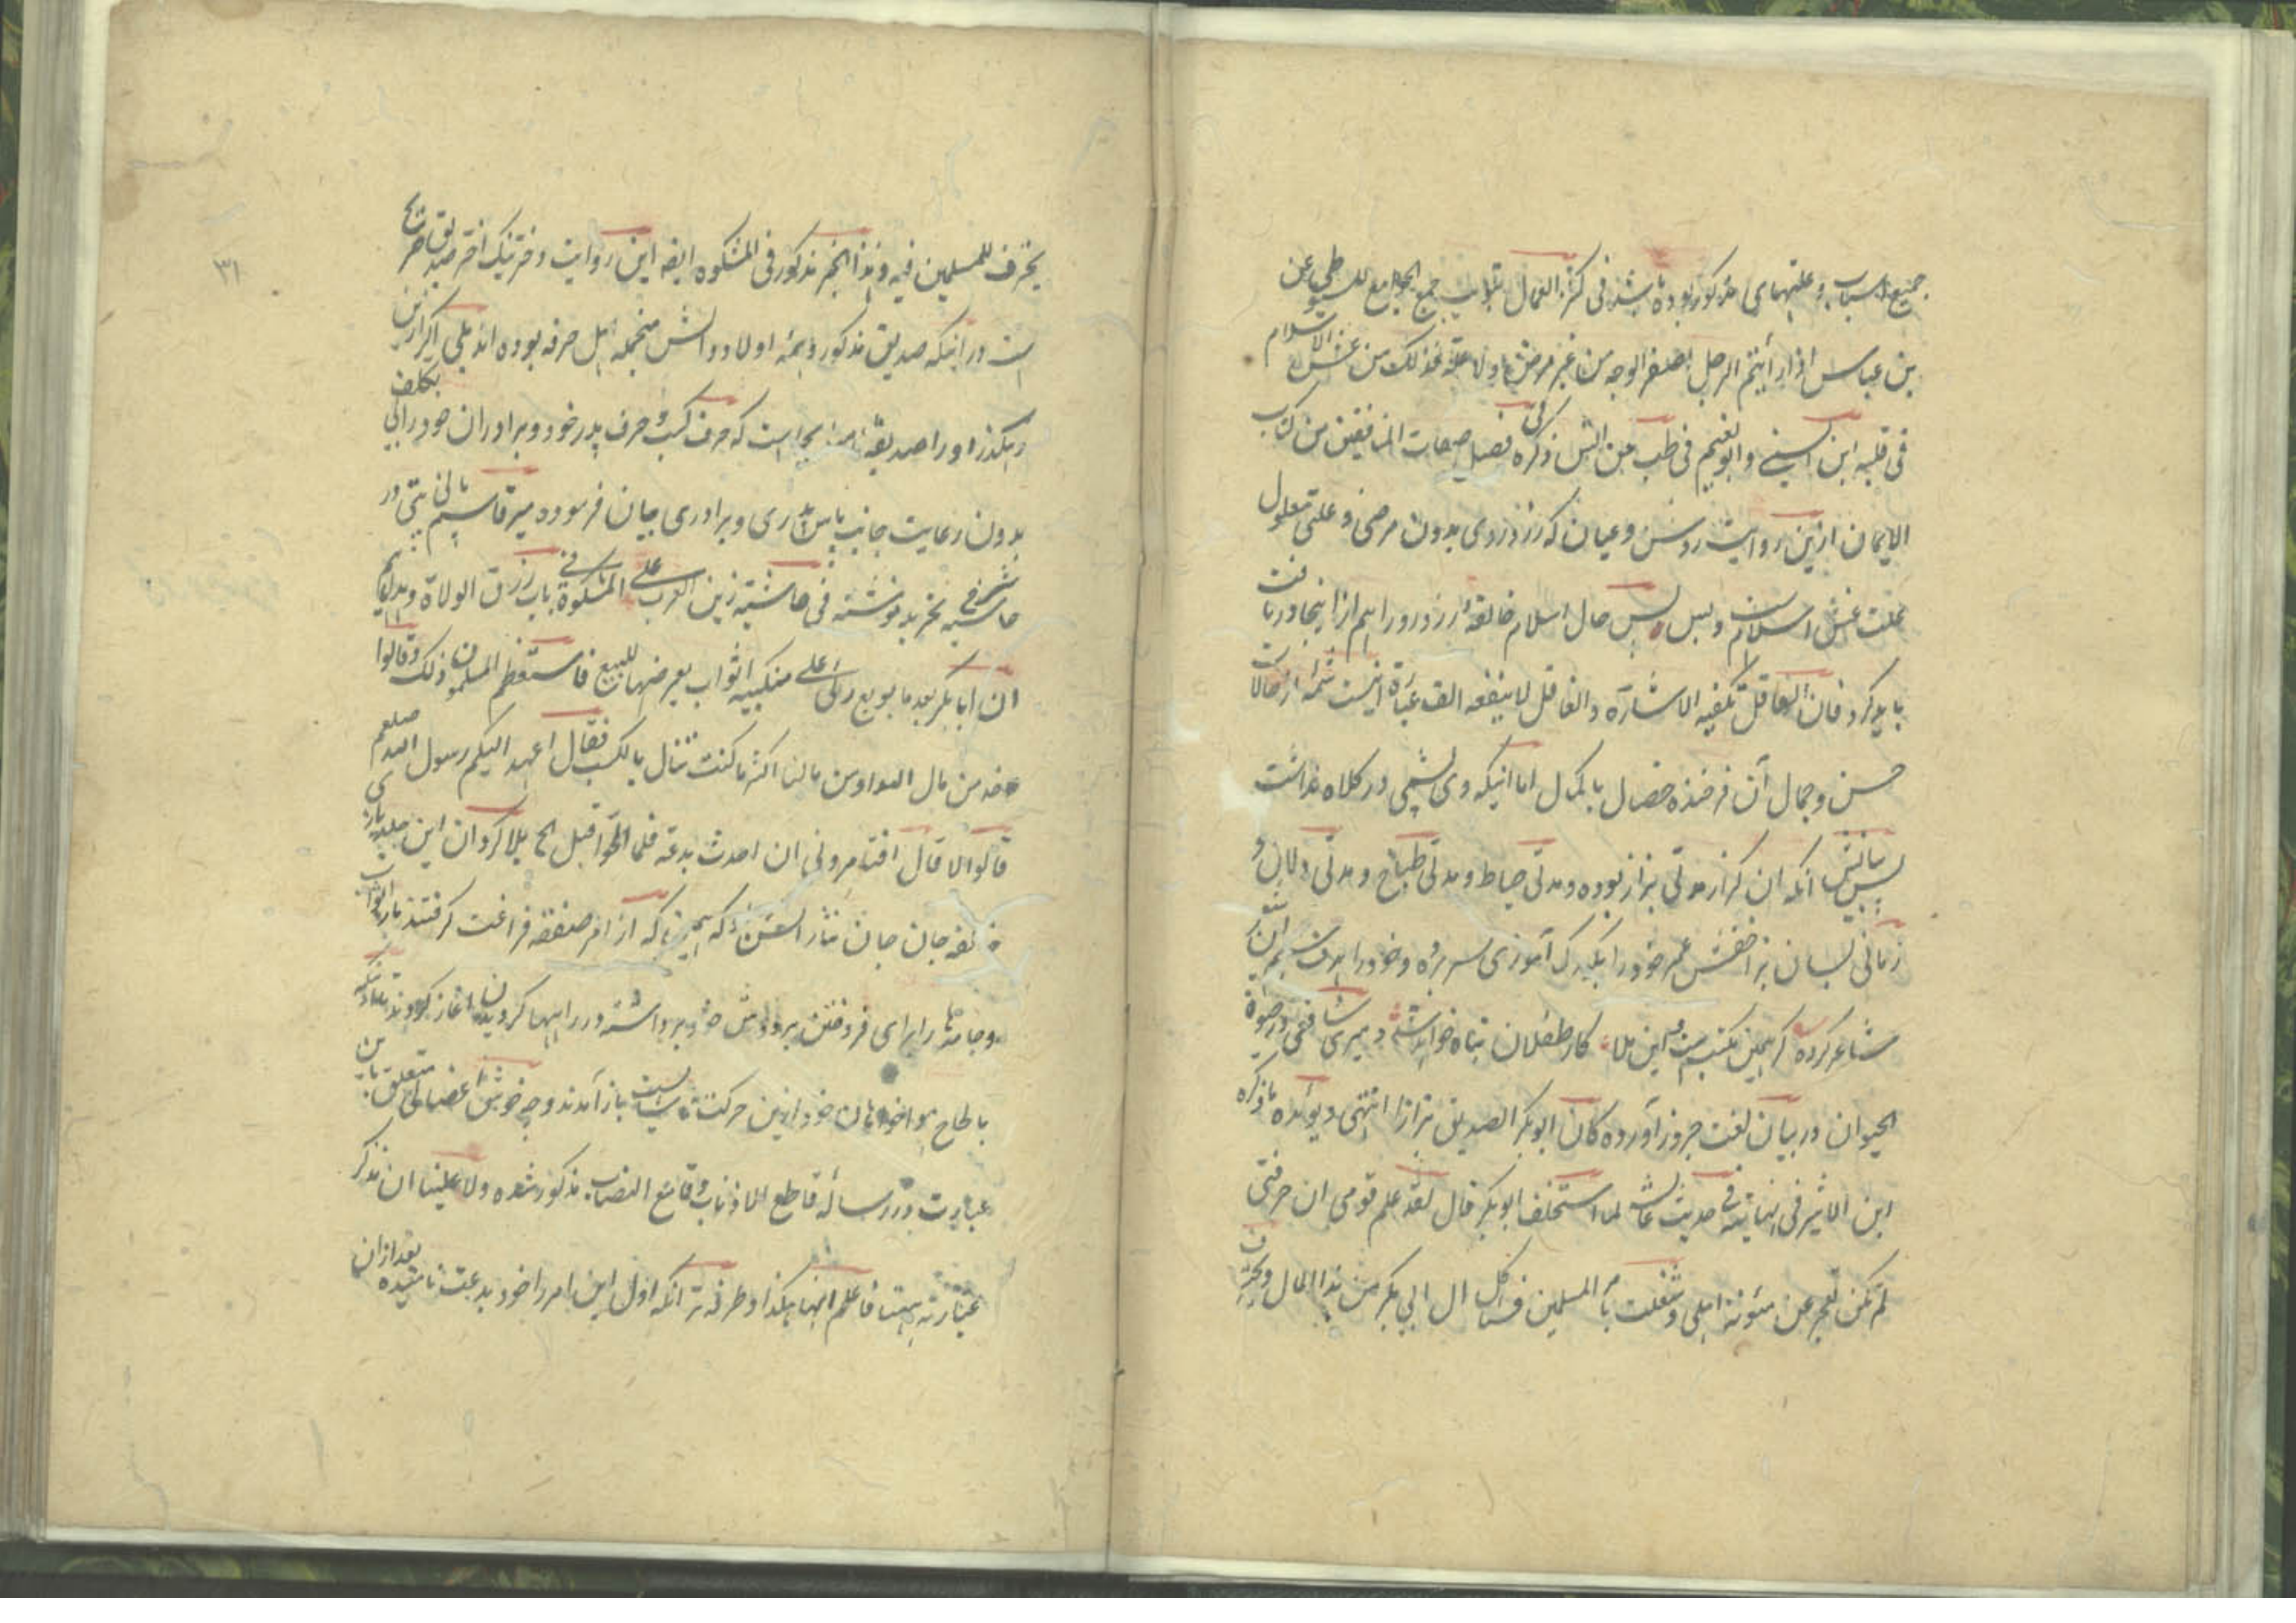 جمیع اسباب و علتهای مذکور بوده باشد فی کنز العمال تبویب جمع الجوامع للسیوطی عن
بن عباس اذا رأیتم الرجل اصفر الوجه من غیر مرض ولا علة فذلک من غش الاسلام
فی قلبه ابن السنی و ابو نعیم فی طب عن انس ذکره فی فصل صفات المنافقین من کتاب
الایمان ازین روایت روشن و عیان که رزد روی بدون مرضی و علتی معلول
علت غش اسلامست و بس پس حال اسلام خالفه رزد رو را هم از اینجا دریافت
باید کرد فان العاقل تکفیه الاشارة والغافل لا ینفعه الف عبارة اینست شمه از حالات
حسن و جمال آن فرخنده خصال با کمال اما اینکه وی پشمی در کلاه نداشت
پس بیانش آنکه ان کرار مدتی بزاز بوده و مدتی خیاط و مدتی طباخ و مدتی دلال و
زمانی بسان بز اخفش عمر خود را بکدرک آموزی بسر برده و خود را هدف سهم این
شاعر کرده گر همین مکتبست و این ملا کار طفلان تباه خواهد شد دمیری شافعی در حیوة
الحیوان در بیان لغت جرور آورده کان ابو بکر الصدیق بزازا انتهی و یؤیده ما ذکره
ابن الاثیر فی النهایة فی حدیث عائشه لما استخلف ابو بکر قال لقد علم قومی ان حرفتی
لم تکن تعجز عن مئونة اهلی و شغلت بامر المسلمین فسیاکل ال ابی بکر من هذا المال و یحترف
۳۱
یحترف للمسلمین فیه و هذا الخبر مذکور فی المشکوة ایضا این روایت دختر نیک اختر صدیق صریح
است در اینکه صدیق مذکور و همه اولاد و والدش منجمله اهل حرفه بوده اند بلی اکر ازین
رهکذر او را صدیقه نامند بجاست که حرف کسب و حرف پدر خود و برادران خود را بی تکلف
بدون رعایت جانب پاس پدری و برادری بیان فرموده میر قاسم مالی پتی در
حاشیه شرح تجرید نوشته فی حاشیة زین العرب علی المشکوة فی باب رزق الولاة و هدایاهم
ان ابا بکر بعد ما بویع رئی علی منکبیه اثواب یعرضها للبیع فاستعظم المسلمون ذلک و قالوا
خذ من مال الله او من مالنا اکثر ما کنت تنال بالکسب فقال اعهد الیکم رسول الله صلعم
قالوا لا قال افتامرونی ان احدث بدعة فلما الحوا قبل الخ یلا کردان این
خالفه جان جان نثار اسقین که همین که از امر صفقه فراغت کرفتند باز اثواب
و جامه ها را برای فروختن بر دوش خود برداشته در راهها کردیدن آغاز کردند تا آنکه
بالحاح هواخواهان خود ازین حرکت ناشایست باز آمدند و چه خوش اعضالی متعلق باین
عبارت در رساله قاطع الاذناب و قامع النصاب مذکور شده ولا علینا ان نذکر
عبارته بهتا فاعلم انها هکذا و طرفه تر آنکه اول این امر را خود بدعت نامیده بعد از ان